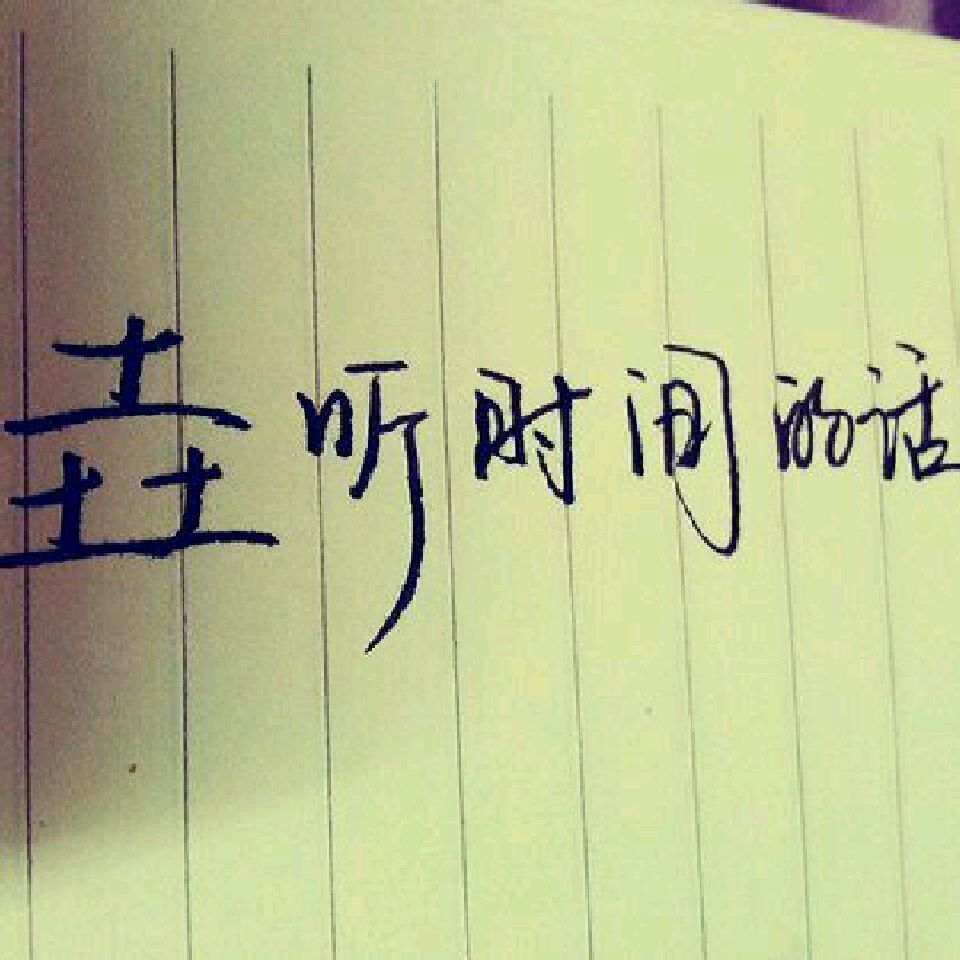 垚听时间的话